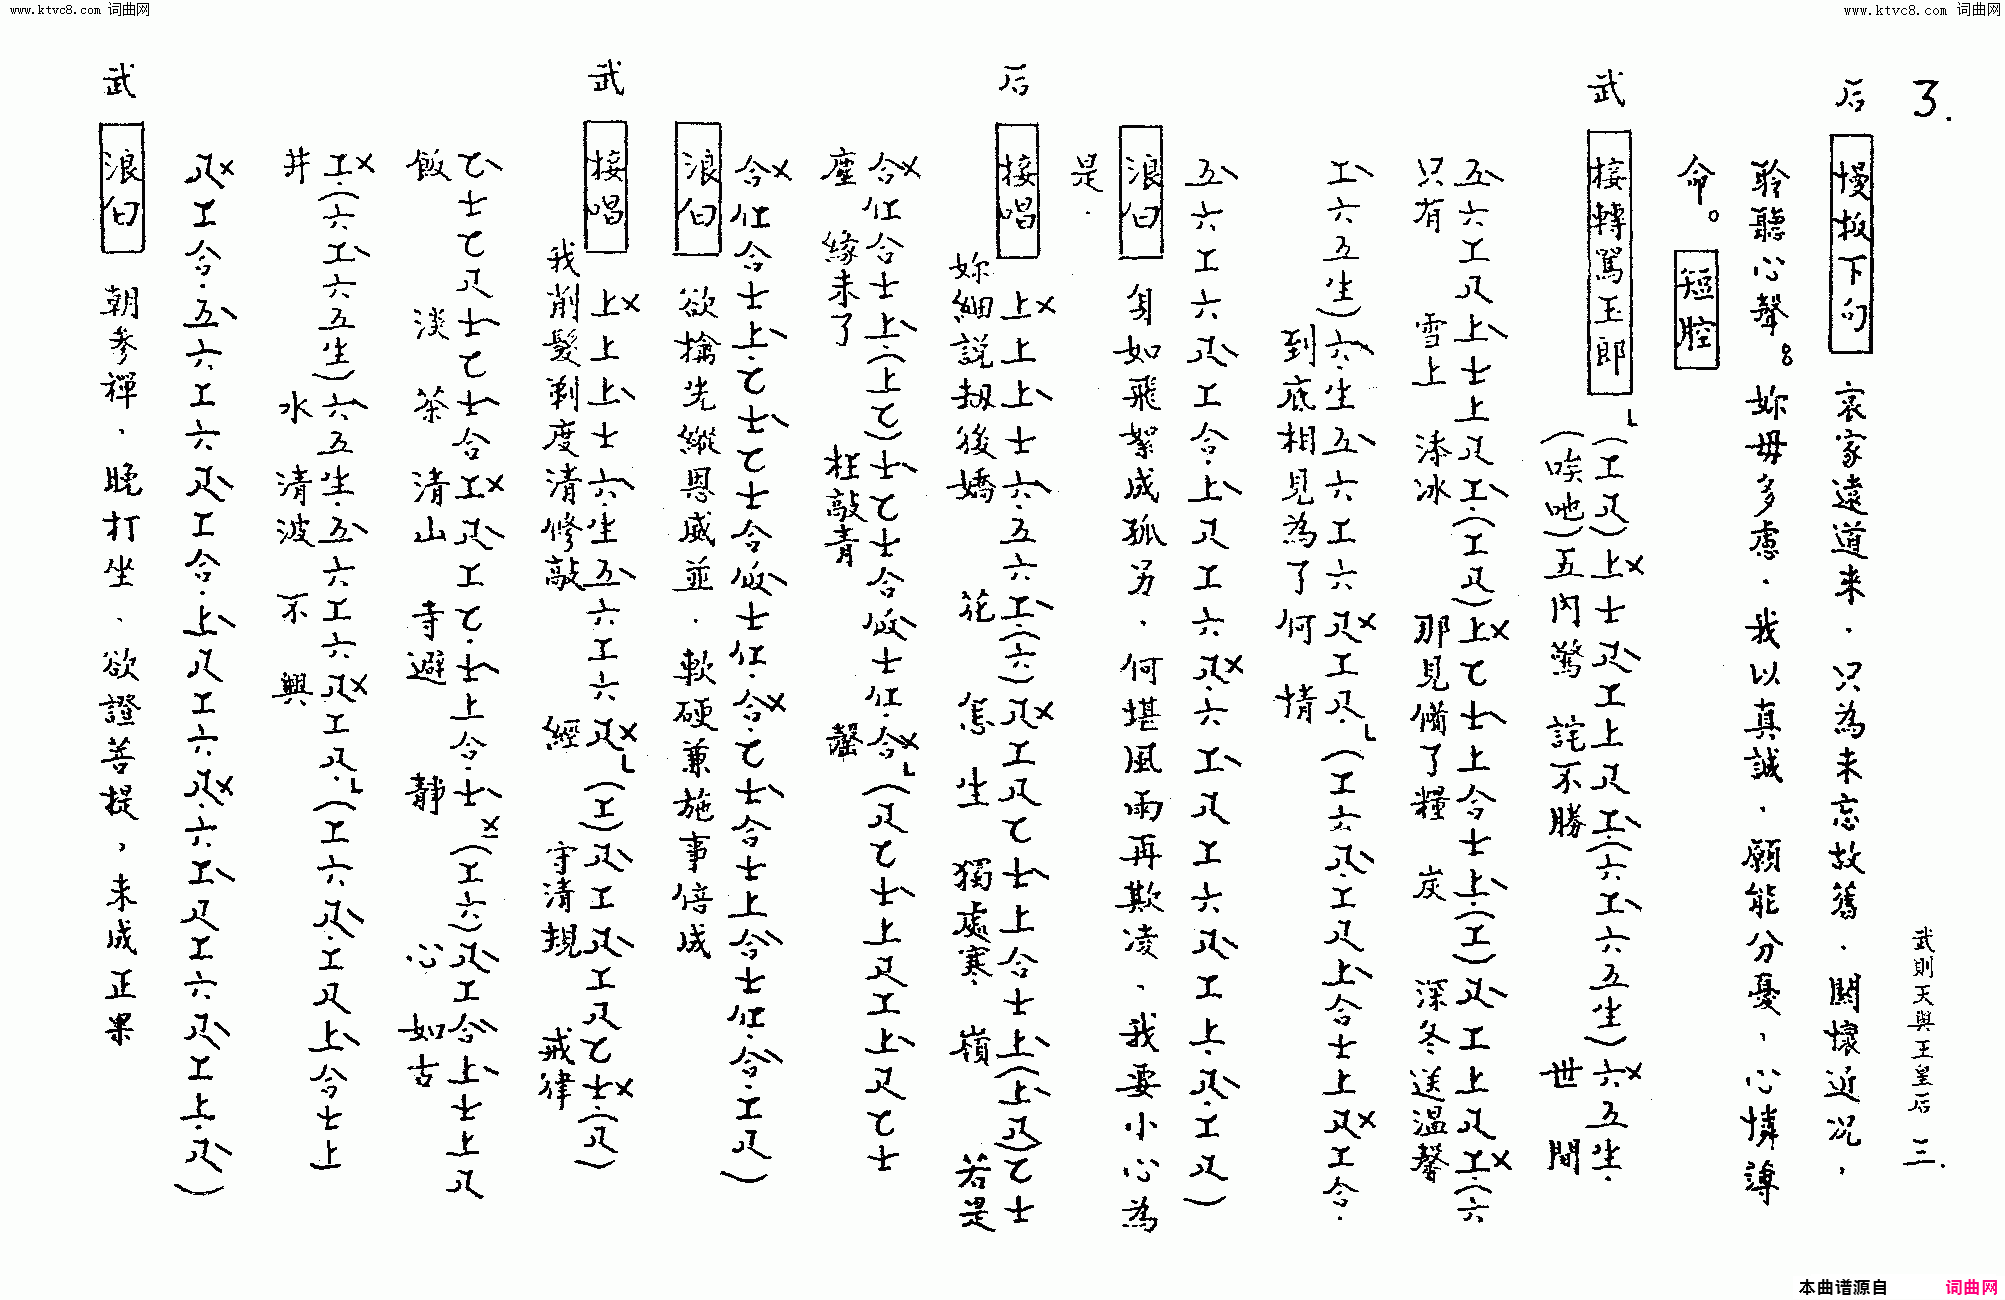 www.ktvc8.com 词曲网
www.ktvc8.com 词曲网
3.
武則天與王皇后 三.
后 慢板下句 哀家遠道來．只為未忘故舊．關懷近況，
聆聽心聲。妳毋多慮．我以真誠．願能分憂，心憐薄
命。短腔
武 接轉罵玉郎 (工尺)上士尺工上尺工(六工六五生)六五生.
(唉吔)五內驚 詫不勝 世 間
五六工尺上士上尺工.(工尺)上乙士上合士上.(工)尺工上尺工.(六
只有 雪上 添冰 那見備了糧 炭 深冬送溫馨
工六五生)六.生五六工六尺工尺.(工六尺.工尺上合士上尺工合.
到底相見為了何 情
五六工六尺工合.上尺工六尺.六工尺工六尺工上.尺.工尺)
浪白 身如飛絮成孤另．何堪風雨再欺凌．我要小心為
是．
后 接唱 上上上士六.五六工.(六)尺工尺乙士上合士上(上尺)乙士
妳細說劫後嬌 花 怎 生 獨處寒 嶺 若是
合仜合士上.(上乙)士乙士合伬士仜.合(尺乙士上尺工上尺乙士
塵 緣未了 枉敲青 磬
合仜合士上.乙士乙士合伬士仜.合.乙士合士上合士仜.合.工尺)
浪白 欲擒先縱恩威並．軟硬兼施事倍成
武 接唱 上上上士六.生五六工六尺(工)尺工尺工尺乙士.(尺)
我削髮剃度清修敲 經 守清規 戒律
乙士乙尺士乙士合工尺工乙.士上合.士(工六)尺工合上士上尺
飯 淡 茶 清山 寺避 靜 心 如古
工.(六工六五生)六五生.五六工六尺工尺.(工六尺.工尺上合士上
井 水 清波 不 興
尺工合.五六工六尺工合.上尺工六尺.六工尺工六尺工上.尺)
武 浪白 朝參禪．晚打坐．欲證菩提，未成正果
本曲谱源自 词曲网